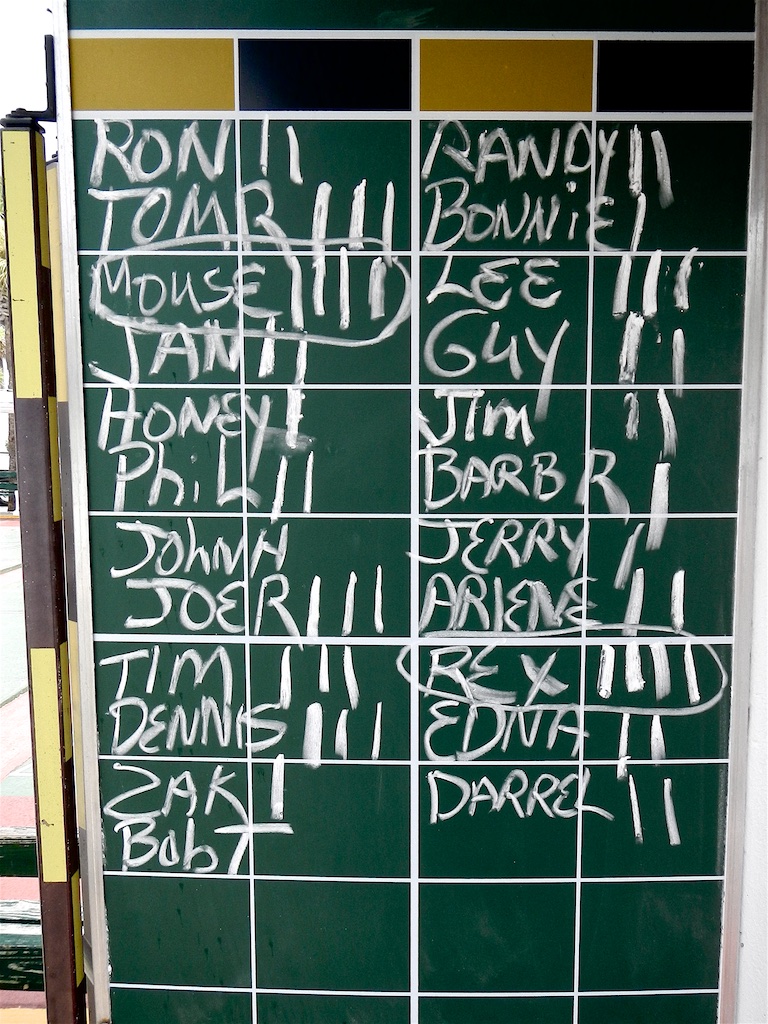 RON ||
TOM R |||
MOUSE ||||
JAN ||
HONEY |
PhiL ||
JOhN H
JOE R |||
TIM |||
DENNIS |||
ZAK |
Bob T
RANDY ||
BONNiE |
LEE |||
GUY ||
JIM ||
BARB R |
JERRY |
ARLENE ||
REX ||||
EDNA ||
DARREL ||